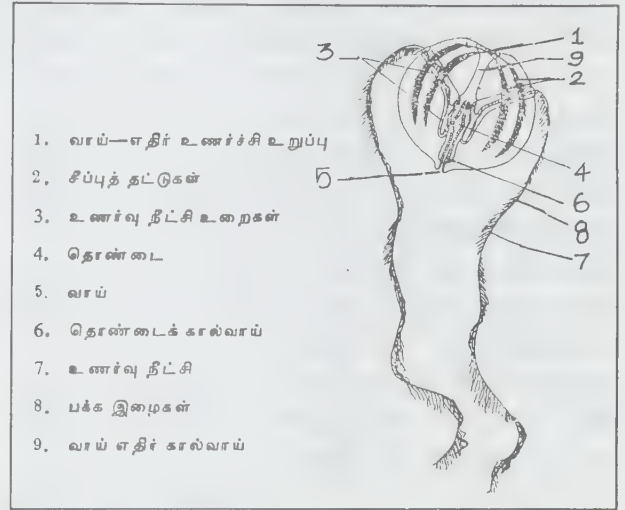 1. வாய்—எதிர் உணர்ச்சி உறுப்பு
2. சீப்புத் தட்டுகள்
3. உணர்வு நீட்சி உறைகள்
4. தொண்டை
5. வாய்
6. தொண்டைக் கால்வாய்
7. உணர்வு நீட்சி
8. பக்க இழைகள்
9. வாய் எதிர் கால்வாய்
3
1
9
2
4
5
6
8
7